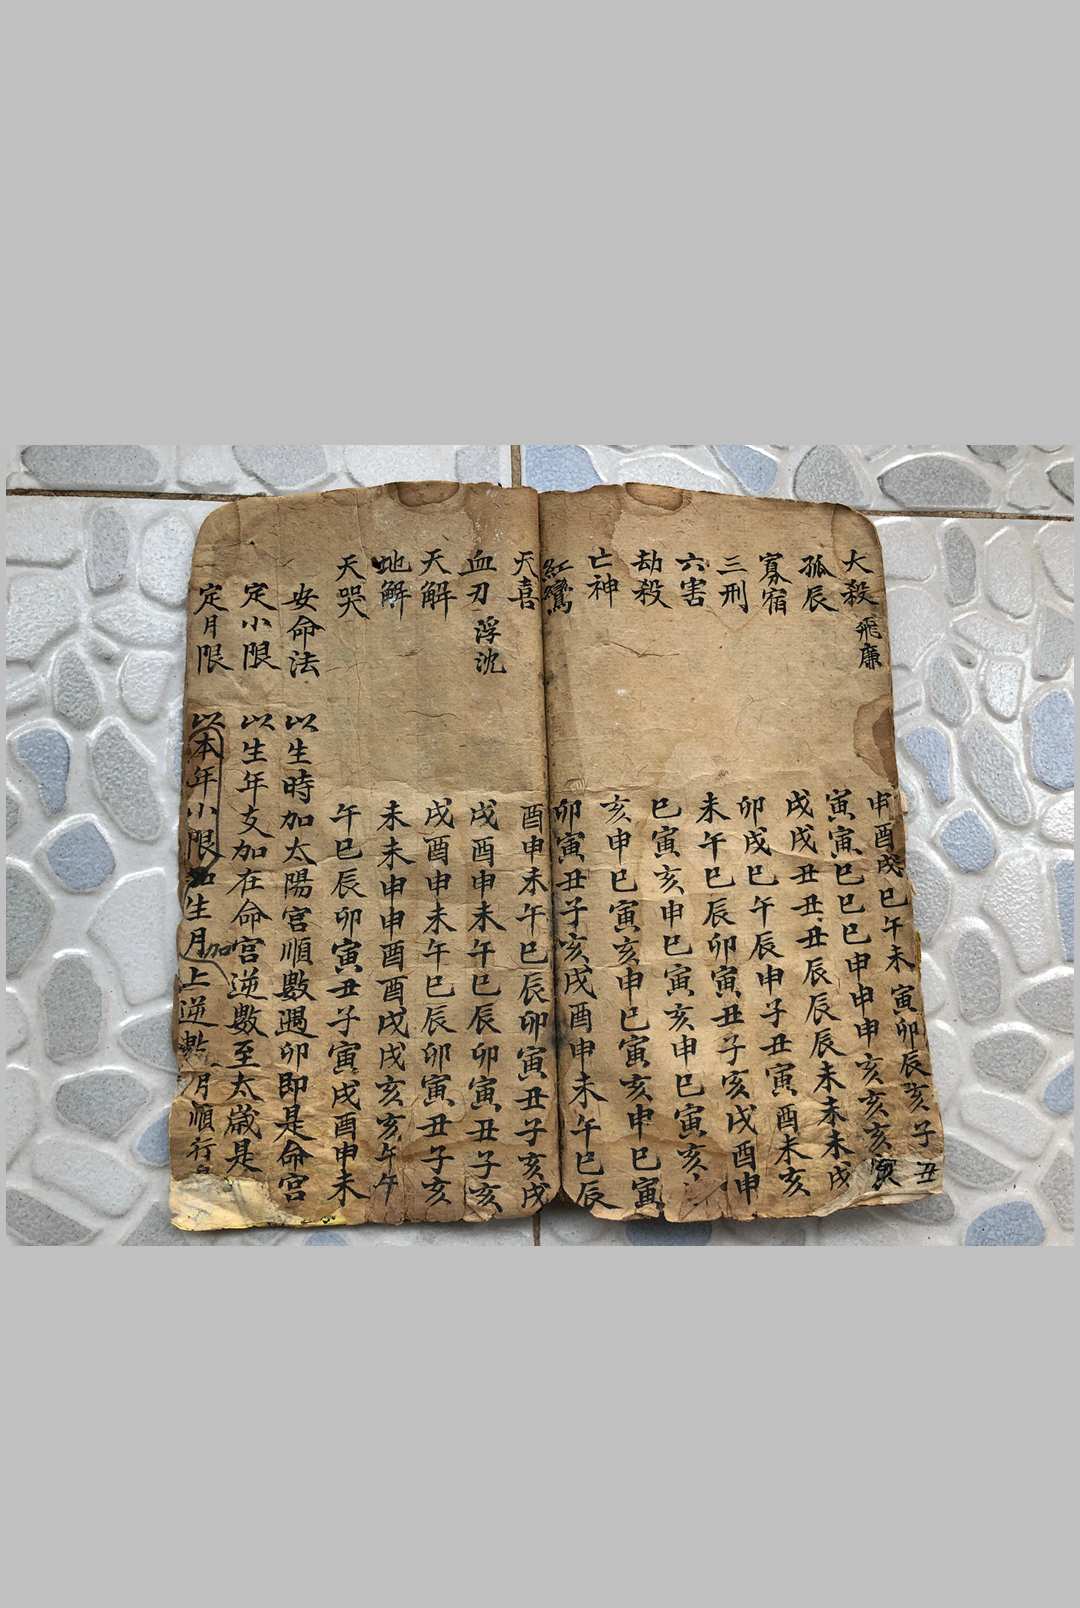 大殺 飛廉 申酉戌巳午未寅卯辰亥子丑
孤辰 寅寅巳巳巳申申申亥亥亥寅
寡宿 戌戌丑丑丑辰辰辰未未未戌
三刑 卯戌巳午辰申子丑寅酉未亥
六害 未午巳辰卯寅丑子亥戌酉申
劫殺 巳寅亥申巳寅亥申巳寅亥
亡神 亥申巳寅亥申巳寅亥申巳寅
紅鸞 卯寅丑子亥戌酉申未午巳辰
天喜 酉申未午巳辰卯寅丑子亥戌
血刃 浮沈 戌酉申未午巳辰卯寅丑子亥
天解 戌酉申未午巳辰卯寅丑子亥
地解 未未申申酉酉戌戌亥亥午午
天哭 午巳辰卯寅丑子寅戌酉申未
安命法 以生時加太陽宮順數遇卯即是命宮
定小限 以生年支加在命宮逆數至太歲是
定月限 以本年小限加生月上逆數 月順行